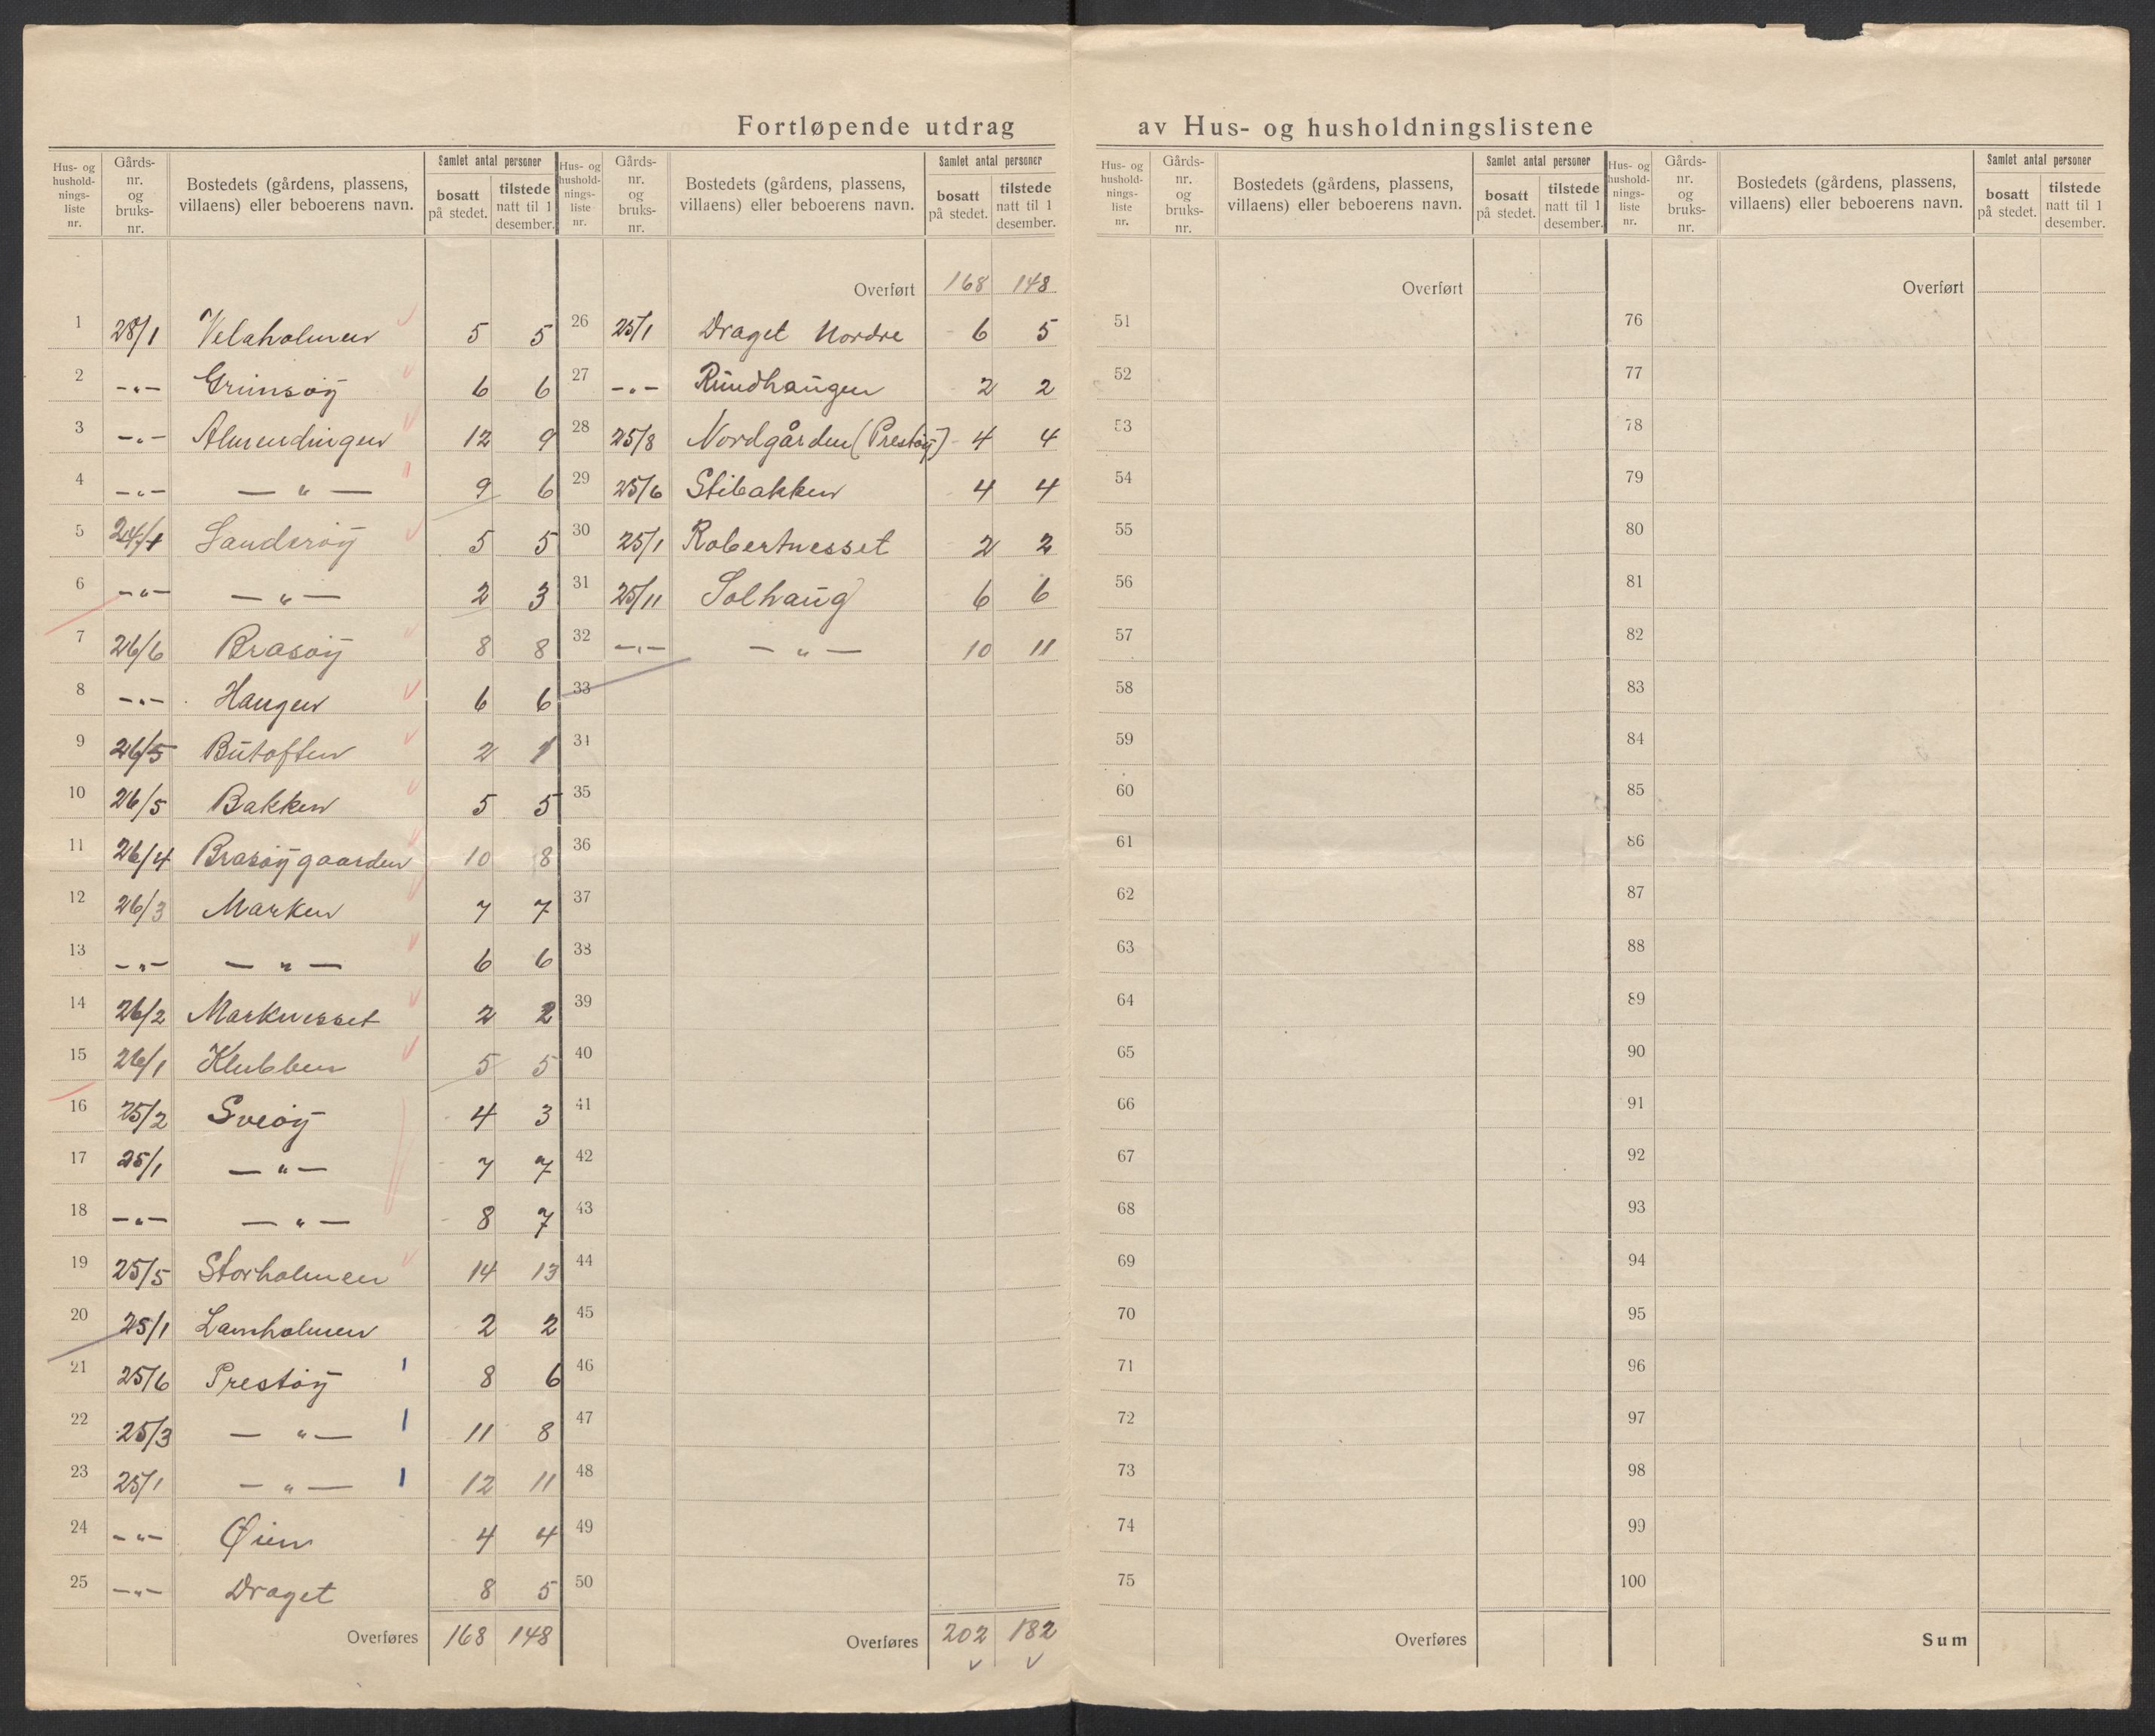 Fortløpende utdrag av Hus- og husholdningslistene
Hus- og hushold-nings-liste nr. Gårds-nr. og bruks-nr. Bostedets (gårdens, plassens, villaens) eller beboerens navn. Samlet antal personer bosatt på stedet. tilstede natt til 1 desember.
1 28/1 Velaholmen 5 5
2 -„- Grimsøy 6 6
3 -„- Almendingen 12 9
4 -„- — „ — 9 6
5 24/1 Sanderøy 5 5
6 -„- — „ — 2 3
7 26/6 Brasøy 8 8
8 -„- Haugen 6 6
9 26/5 Butoften 2 1
10 26/5 Bakken 5 5
11 26/4 Brasøygaarden 10 8
12 26/3 Marken 7 7
13 -„- — „ — 6 6
14 26/2 Marknesset 2 2
15 26/1 Klubben 5 5
16 25/2 Sveøy 4 3
17 25/1 — „ — 7 7
18 -„- — „ — 8 7
19 25/5 Storholmen 14 13
20 25/1 Lamholmen 2 2
21 25/6 Prestøy 8 6
22 25/3 — „ — 11 8
23 25/1 — „ — 12 11
24 -„- Øien 4 4
25 -„- Draget 8 5
Overføres 168 148
Hus- og hushold-nings-liste nr. Gårds-nr. og bruks-nr. Bostedets (gårdens, plassens, villaens) eller beboerens navn. Samlet antal personer bosatt på stedet. tilstede natt til 1 desember.
Overført 168 148
26 25/1 Draget Nordre 6 5
27 -„- Rundhaugen 2 2
28 25/8 Nordgården (Prestøy) 4 4
29 25/6 Stibakken 4 4
30 25/1 Robertnesset 2 2
31 25/11 Solhaug 6 6
32 -„- — „ — 10 11
33
34
35
36
37
38
39
40
41
42
43
44
45
46
47
48
49
50
Overføres 202 182
Hus- og hushold-nings-liste nr. Gårds-nr. og bruks-nr. Bostedets (gårdens, plassens, villaens) eller beboerens navn. Samlet antal personer bosatt på stedet. tilstede natt til 1 desember.
Overført
51
52
53
54
55
56
57
58
59
60
61
62
63
64
65
66
67
68
69
70
71
72
73
74
75
Overføres
Hus- og hushold-nings-liste nr. Gårds-nr. og bruks-nr. Bostedets (gårdens, plassens, villaens) eller beboerens navn. Samlet antal personer bosatt på stedet. tilstede natt til 1 desember.
Overført
76
77
78
79
80
81
82
83
84
85
86
87
88
89
90
91
92
93
94
95
96
97
98
99
100
Sum